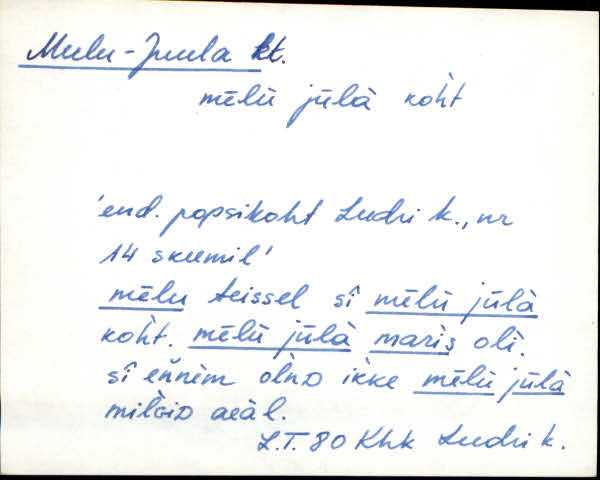 Mulu-Juula kt.
mēlu jūlà koh̀t
'end. popsikoht Ludri k., nr
14 skeemil'
mēlu teissel sî mēlu jūlà
koh̀t. mēlu jūlà maris oli.
sî eňnèm oln̆D ikke mēlu jūlà
aeàl.
L.T. 80 Khk Ludri k.